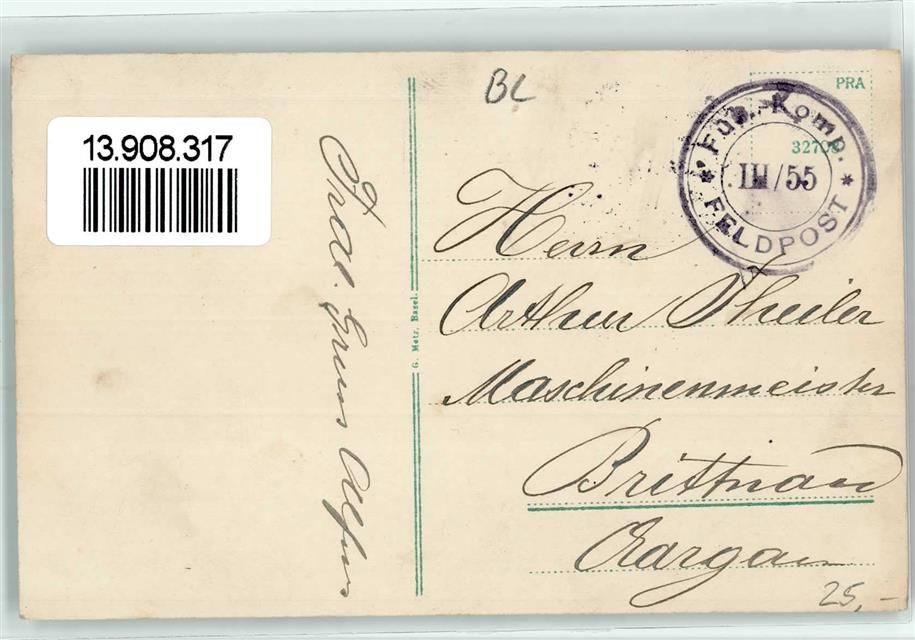 BL
PRA
32708
Füs. Komp.
III/55
* FELDPOST *
13.908.317
Frdl. Gruss Alfons
G. Metz, Basel.
Herrn
Arthur Theiler
Maschinenmeister
Brittnau
Aargau
25,-